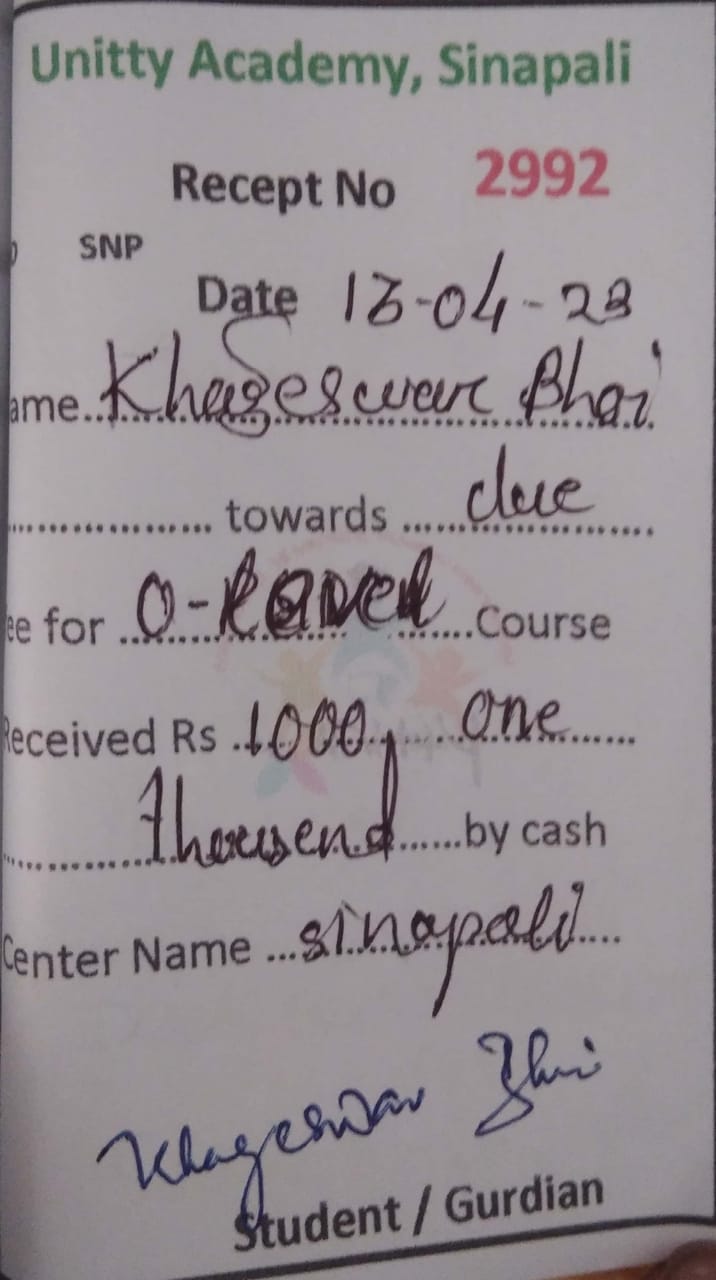 Unitty Academy, Sinapali
Recept No 2992
SNP
Date 13-04-23
ame..Khageswar Bhoi
.................. towards ...due
ee for ..O-Level ....Course
Received Rs ..1000, ....one
............Thousend......by cash
Center Name ...sinapali....
Khageswar Bhoi
Student / Gurdian